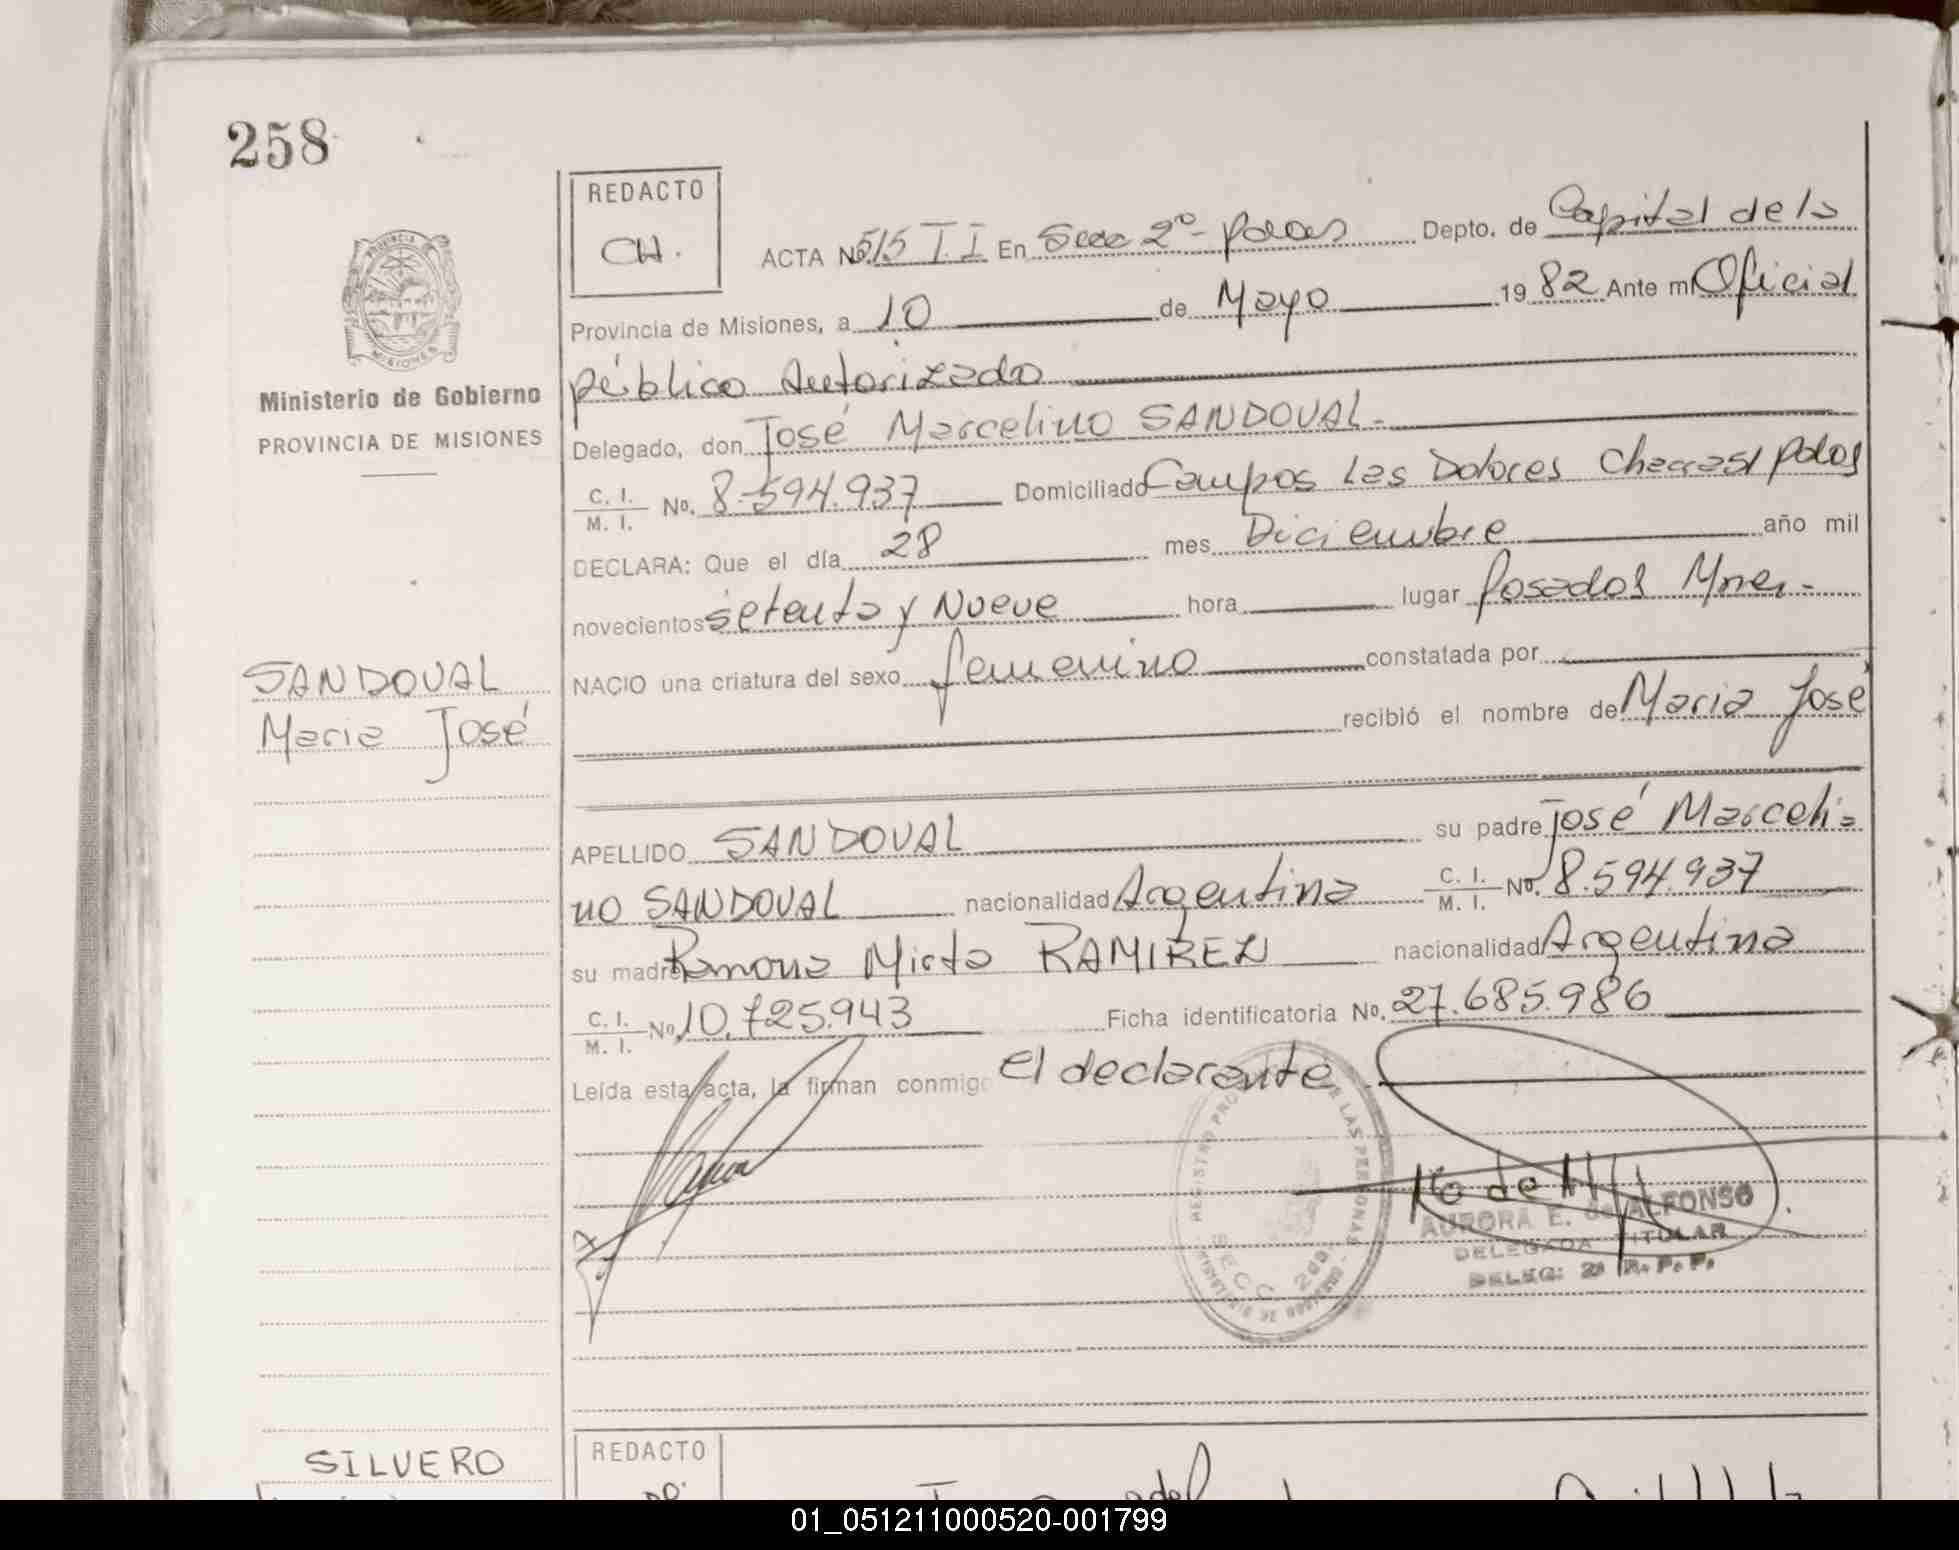 258
REDACTO
CH.
ACTA Nº 515 T.I En Secc 2º- Pdas Depto. de Capital de la
Provincia de Misiones, a 10 de Mayo 1982 Ante mí Oficial
público Autorizado
Delegado, don José Marcelino SANDOVAL-
C. I. / M. I. No. 8.594.937 Domiciliado Campos Las Dolores
DECLARA: Que el día 28 mes Diciembre año mil
novecientos setenta y Nueve hora lugar Posadas Mnes.-
NACIO una criatura del sexo femenino constatada por
recibió el nombre de Maria José
APELLIDO SANDOVAL su padre José Marceli-
no SANDOVAL nacionalidad Argentina C. I. / M. I. No. 8.594.937
su madre Ramona Mirta RAMIREZ nacionalidad Argentina
C. I. / M. I. No. 10.725.943 Ficha identificatoria No. 27.685.986
Leída esta acta, la firman conmigo El declarante
PROVINCIA DE MISIONES
Ministerio de Gobierno
PROVINCIA DE MISIONES
SANDOVAL
Maria José
REGISTRO PROV DE LAS PERSONAS
SECC. 2da
AURORA E. de ALFONSO
DELEGADA TITULAR
DELEG: 2ª R. P. P.
SILVERO
REDACTO
01_051211000520-001799